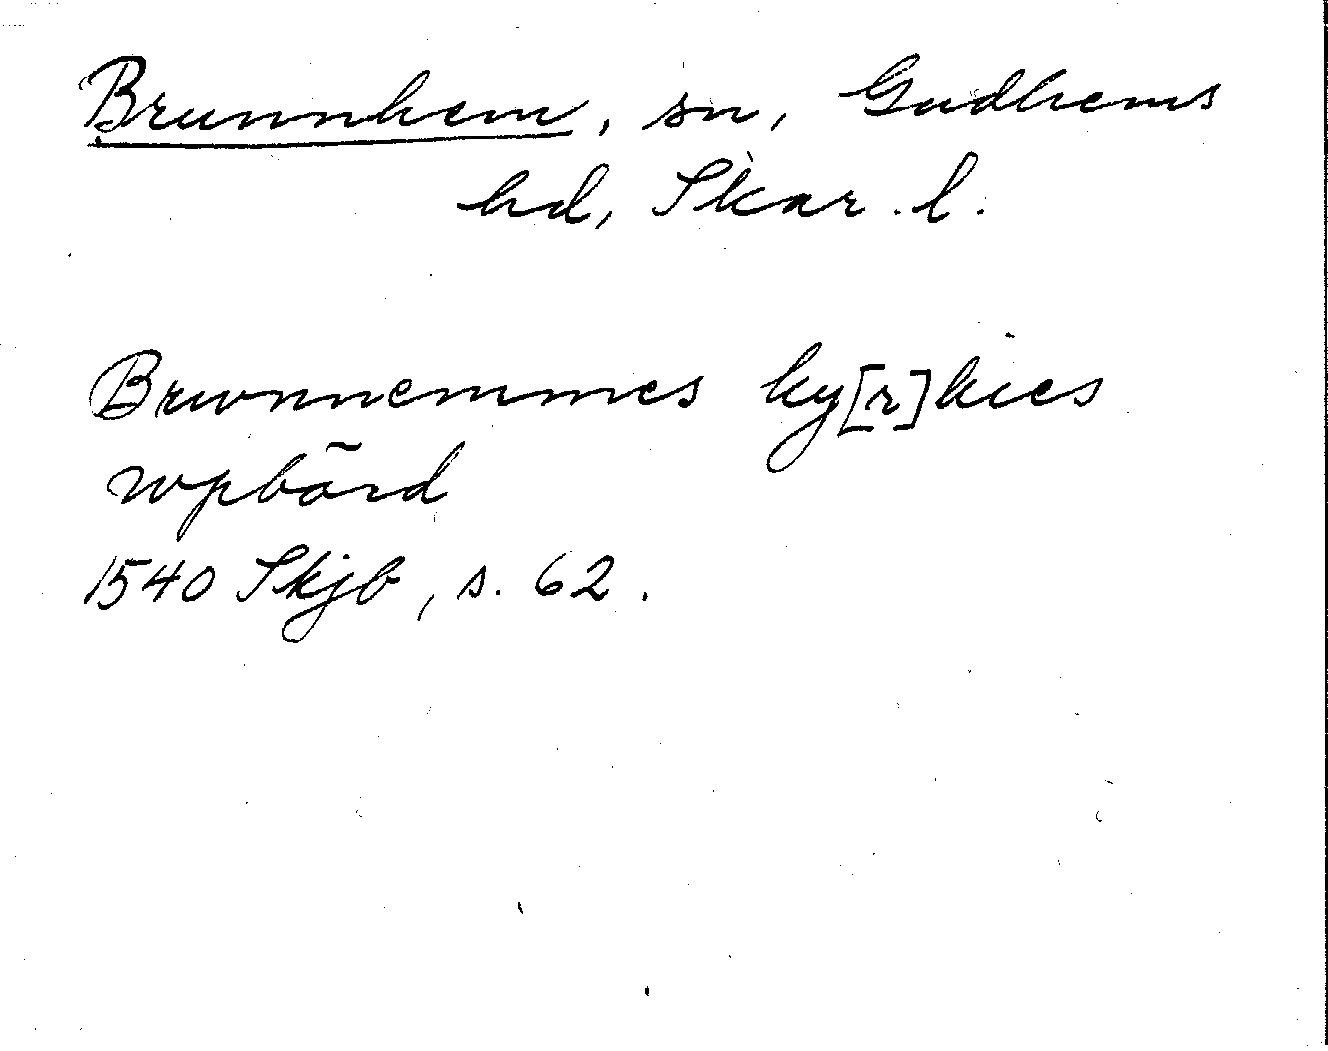 Brunnhem, sn, Gudhems
hd, Skar. l.
Brwnnemmes ky[r]kies
wpbörd
1540 Skjb, s. 62.